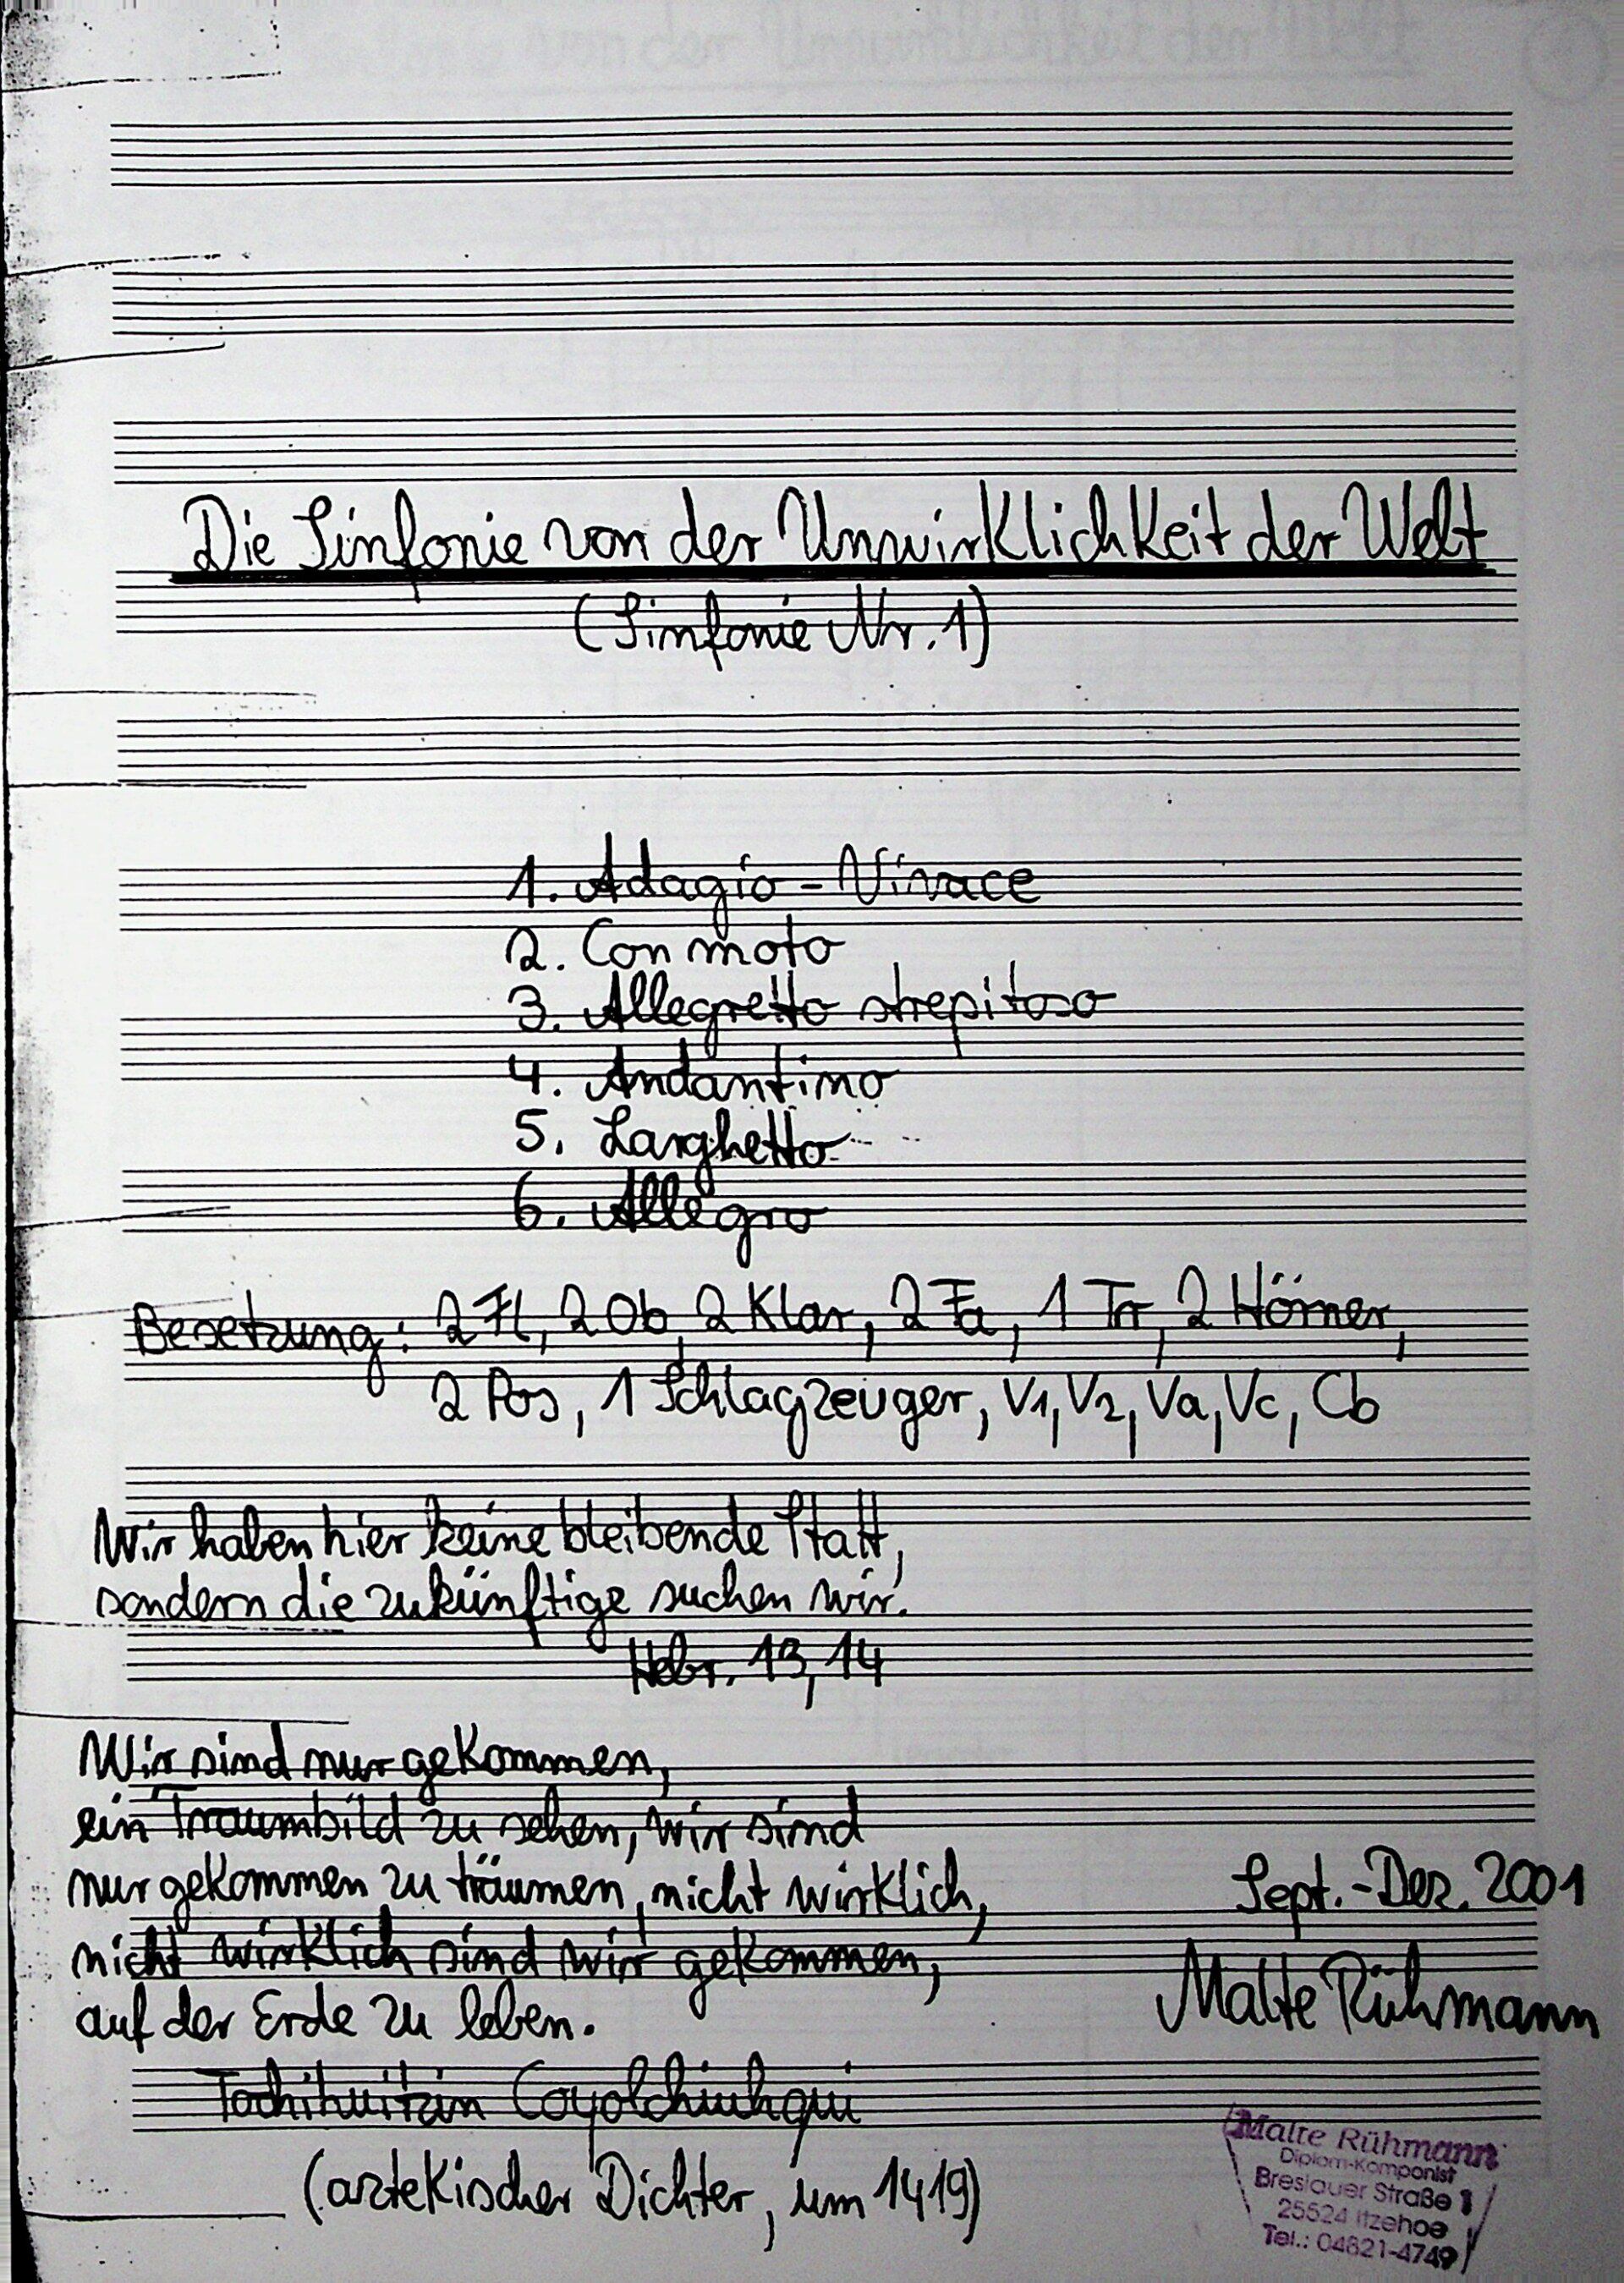 Die Sinfonie von der Unwirklichkeit der Welt
(Sinfonie Nr. 1)
1. Adagio - Vivace
2. Con moto
3. Allegretto strepitoso
4. Andantino
5. Larghetto
6. Allegro
Besetzung: 2 Fl, 2 Ob, 2 Klar, 2 Fa, 1 Tr, 2 Hörner,
2 Pos, 1 Schlagzeuger, V1, V2, Va, Vc, Cb
Wir haben hier keine bleibende Statt,
sondern die zukünftige suchen wir.
Hebr. 13, 14
Wir sind nur gekommen,
ein Traumbild zu sehen, wir sind
nur gekommen zu träumen, nicht wirklich,
nicht wirklich sind wir gekommen,
auf der Erde zu leben.
Tochihuitzin Coyolchiuhqui
(aztekischer Dichter, um 1419)
Sept. - Dez. 2001
Malte Rühmann
Malte Rühmann
Diplom-Komponist
Breslauer Straße 1
25524 Itzehoe
Tel.: 04821-4749